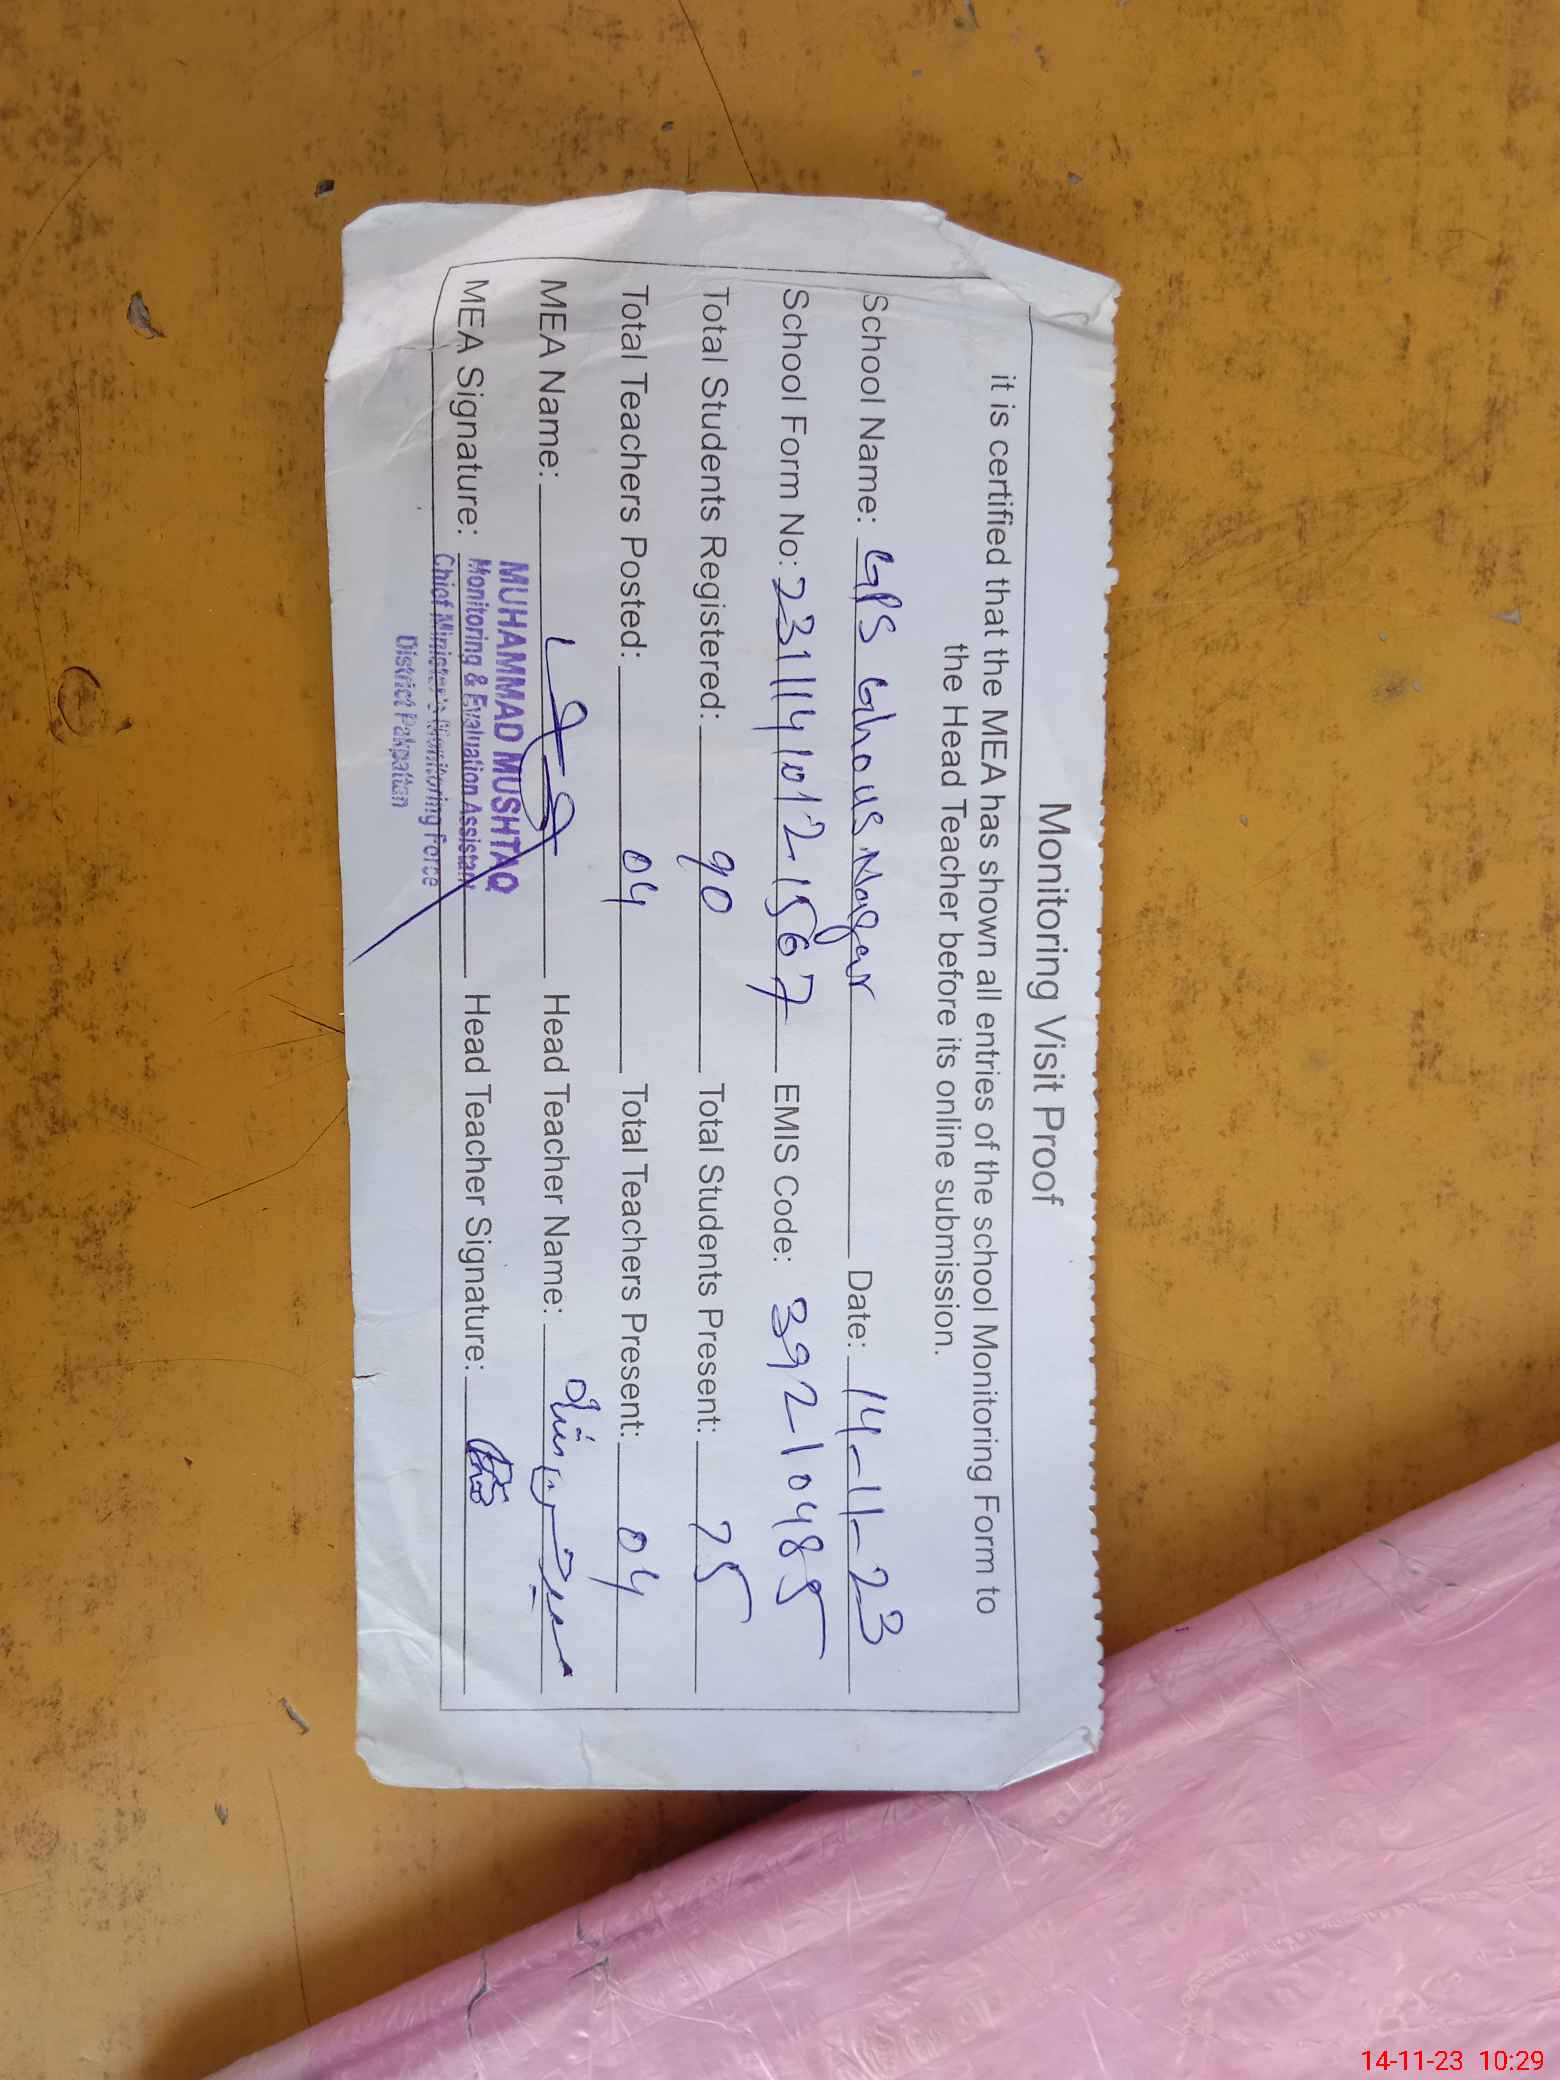 Monitoring Visit Proof
it is certified that the MEA has shown all entries of the school Monitoring Form to
the Head Teacher before its online submission.
School Name: GPS Ghous Nagar Date: 14-11-23
School Form No: 23111410121567 EMIS Code: 39210485
Total Students Registered: 90 Total Students Present: 75
Total Teachers Posted: 04 Total Teachers Present: 04
MEA Name: Head Teacher Name:
MEA Signature: Head Teacher Signature:
MUHAMMAD MUSHTAQ
Monitoring & Evaluation Assistant
Chief Minister's Monitoring Force
District Pakpattan
14-11-23 10:29